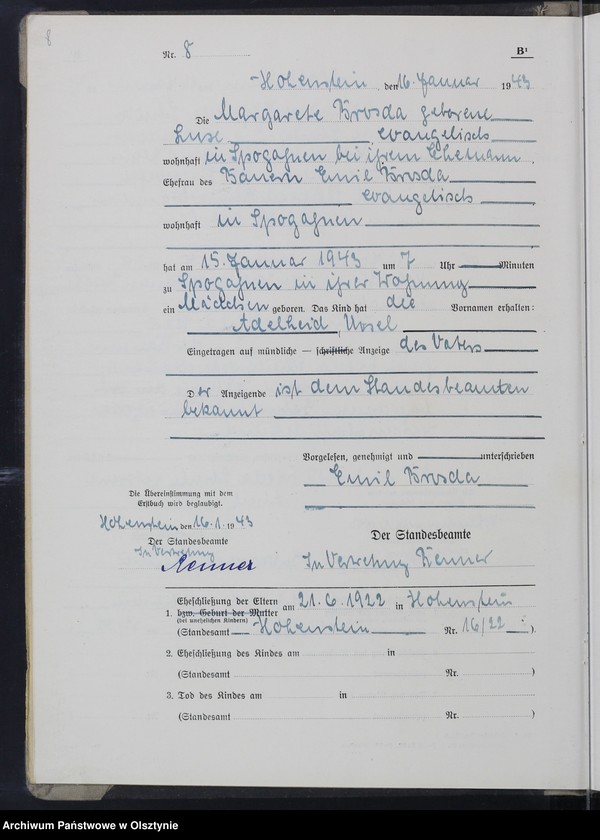 8
Nr. 8
B¹
Hohenstein, den 16. Januar 1943
Die Margarete Brosda geborene
evangelisch
wohnhaft in Spogahnen bei ihrem Ehemann,
Ehefrau des Bauern Emil Brosda
evangelisch
wohnhaft in Spogahnen
hat am 15. Januar 1943 um 7 Uhr Minuten
zu Spogahnen in ihrer Wohnung
ein Mädchen geboren. Das Kind hat die Vornamen erhalten:
Adelheid, Ursel
Eingetragen auf mündliche — schriftliche Anzeige des Vaters
Der Anzeigende ist dem Standesbeamten
bekannt
Vorgelesen, genehmigt und unterschrieben
Emil Brosda
Die Übereinstimmung mit dem
Erstbuch wird beglaubigt.
Hohenstein, den 16.1.1943
Der Standesbeamte
In Vertretung
Der Standesbeamte
In Vertretung
Eheschließung der Eltern
1. bzw. Geburt der Mutter am 21.6.1922 in Hohenstein
(bei unehelichen Kindern)
(Standesamt Hohenstein Nr. 16/22).
2. Eheschließung des Kindes am in
(Standesamt Nr. )
3. Tod des Kindes am in
(Standesamt Nr. )
Archiwum Państwowe w Olsztynie